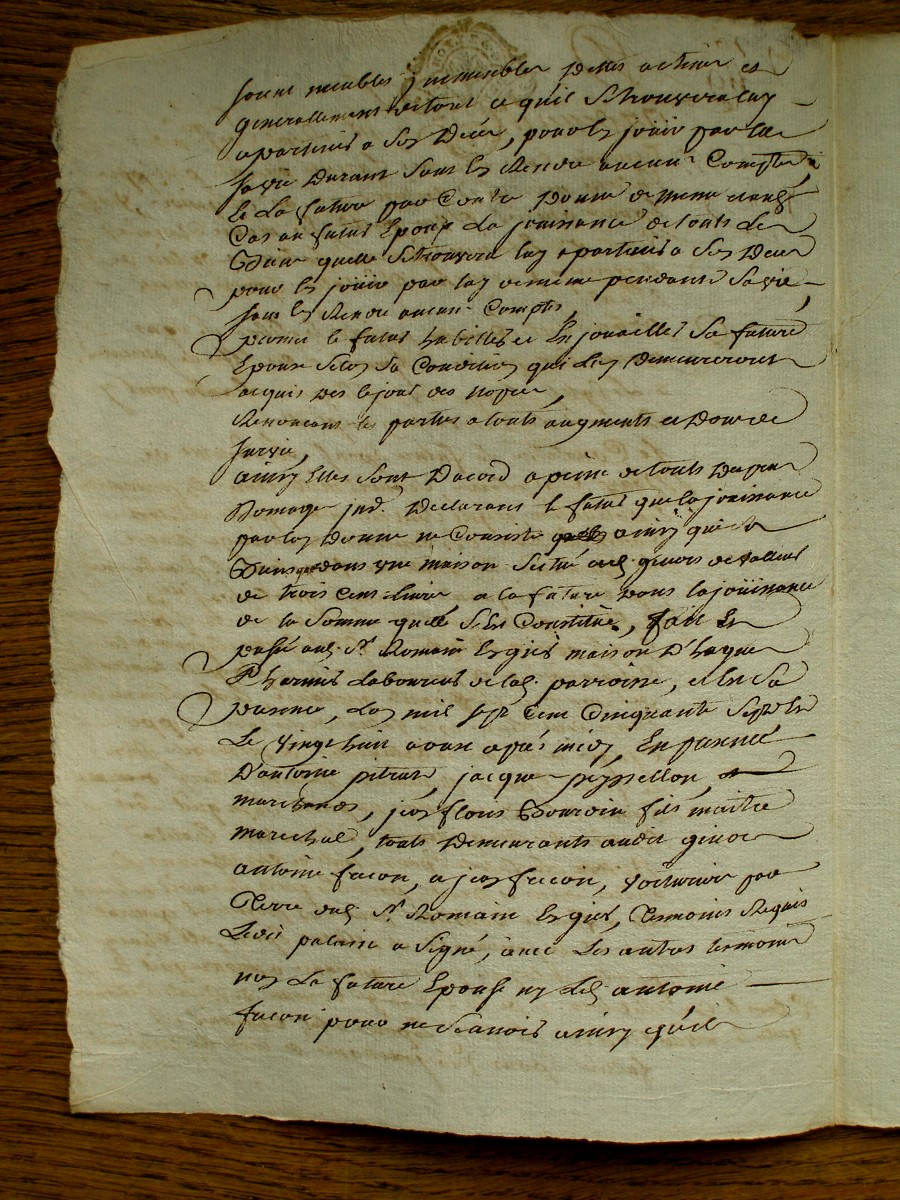 Soient meubles immeubles dettes actions et
generallement de tout ce qu'il se trouvera luy
apartenir a son Deces, pour en jouir par elle
sa vie Durant sans en Rendre aucun Compte,
Et la future par Contre Donne de meme audit
Cas au futur Epoux la jouissance de touts les
Biens quelle se trouvera luy apartenir a son Deces
pour en jouir par luy de meme pendant sa vie,
sans en Rendre aucun Compte,
promet le futur habiller et Enjoualler sa future
Epouse selon sa Condition qui luy Demeureront
acquis des le jour des Noces,
Renoncent les parties a touts augments et Dons de
survie,
ainsy Elles sont D'acord a peine de touts Depens
Domages Declarant le futur que la jouissance
par luy Donnée ne Consiste ainsy que
Biens que dans une maison Située aud. givors de valleur
de trois Cens livres a la future dans la joüissance
de la Somme quelle s'est Constitué, fait Et
passé aud. St. Romain En giés maison D'
laboureur de lad. parroisse, et En sa
presence, L'an mil sept Cent Cinquante Sept Et
Le vingt huit avant aprés midy En presence
D'antoine pitrat, jacque peyssellon,
marchands, jean flouis Bourdin fils maitre
marechal, touts Demeurants audit givors
antoine facon, a jean facon, voiturier par
Terre aud. St. Romain En giés, Temoins Requis
Ledit a Signé, avec Les autres temoins
non La future Epouse ny Led. antoine
facon pour ne Scavoir ainsy qu'ils